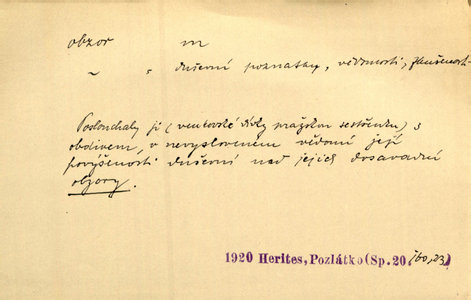 obzor m
~ = duševní poznatky, vědomosti, zkušenost
Poslouchaly ji (venkovské dívky pražskou sestřenku) s
obdivem, v nevysloveném vědomí její
povýšenosti duševní nad jejich dosavadní
obzory.
1920 Herites, Pozlátko (Sp. 20, 160, 23)